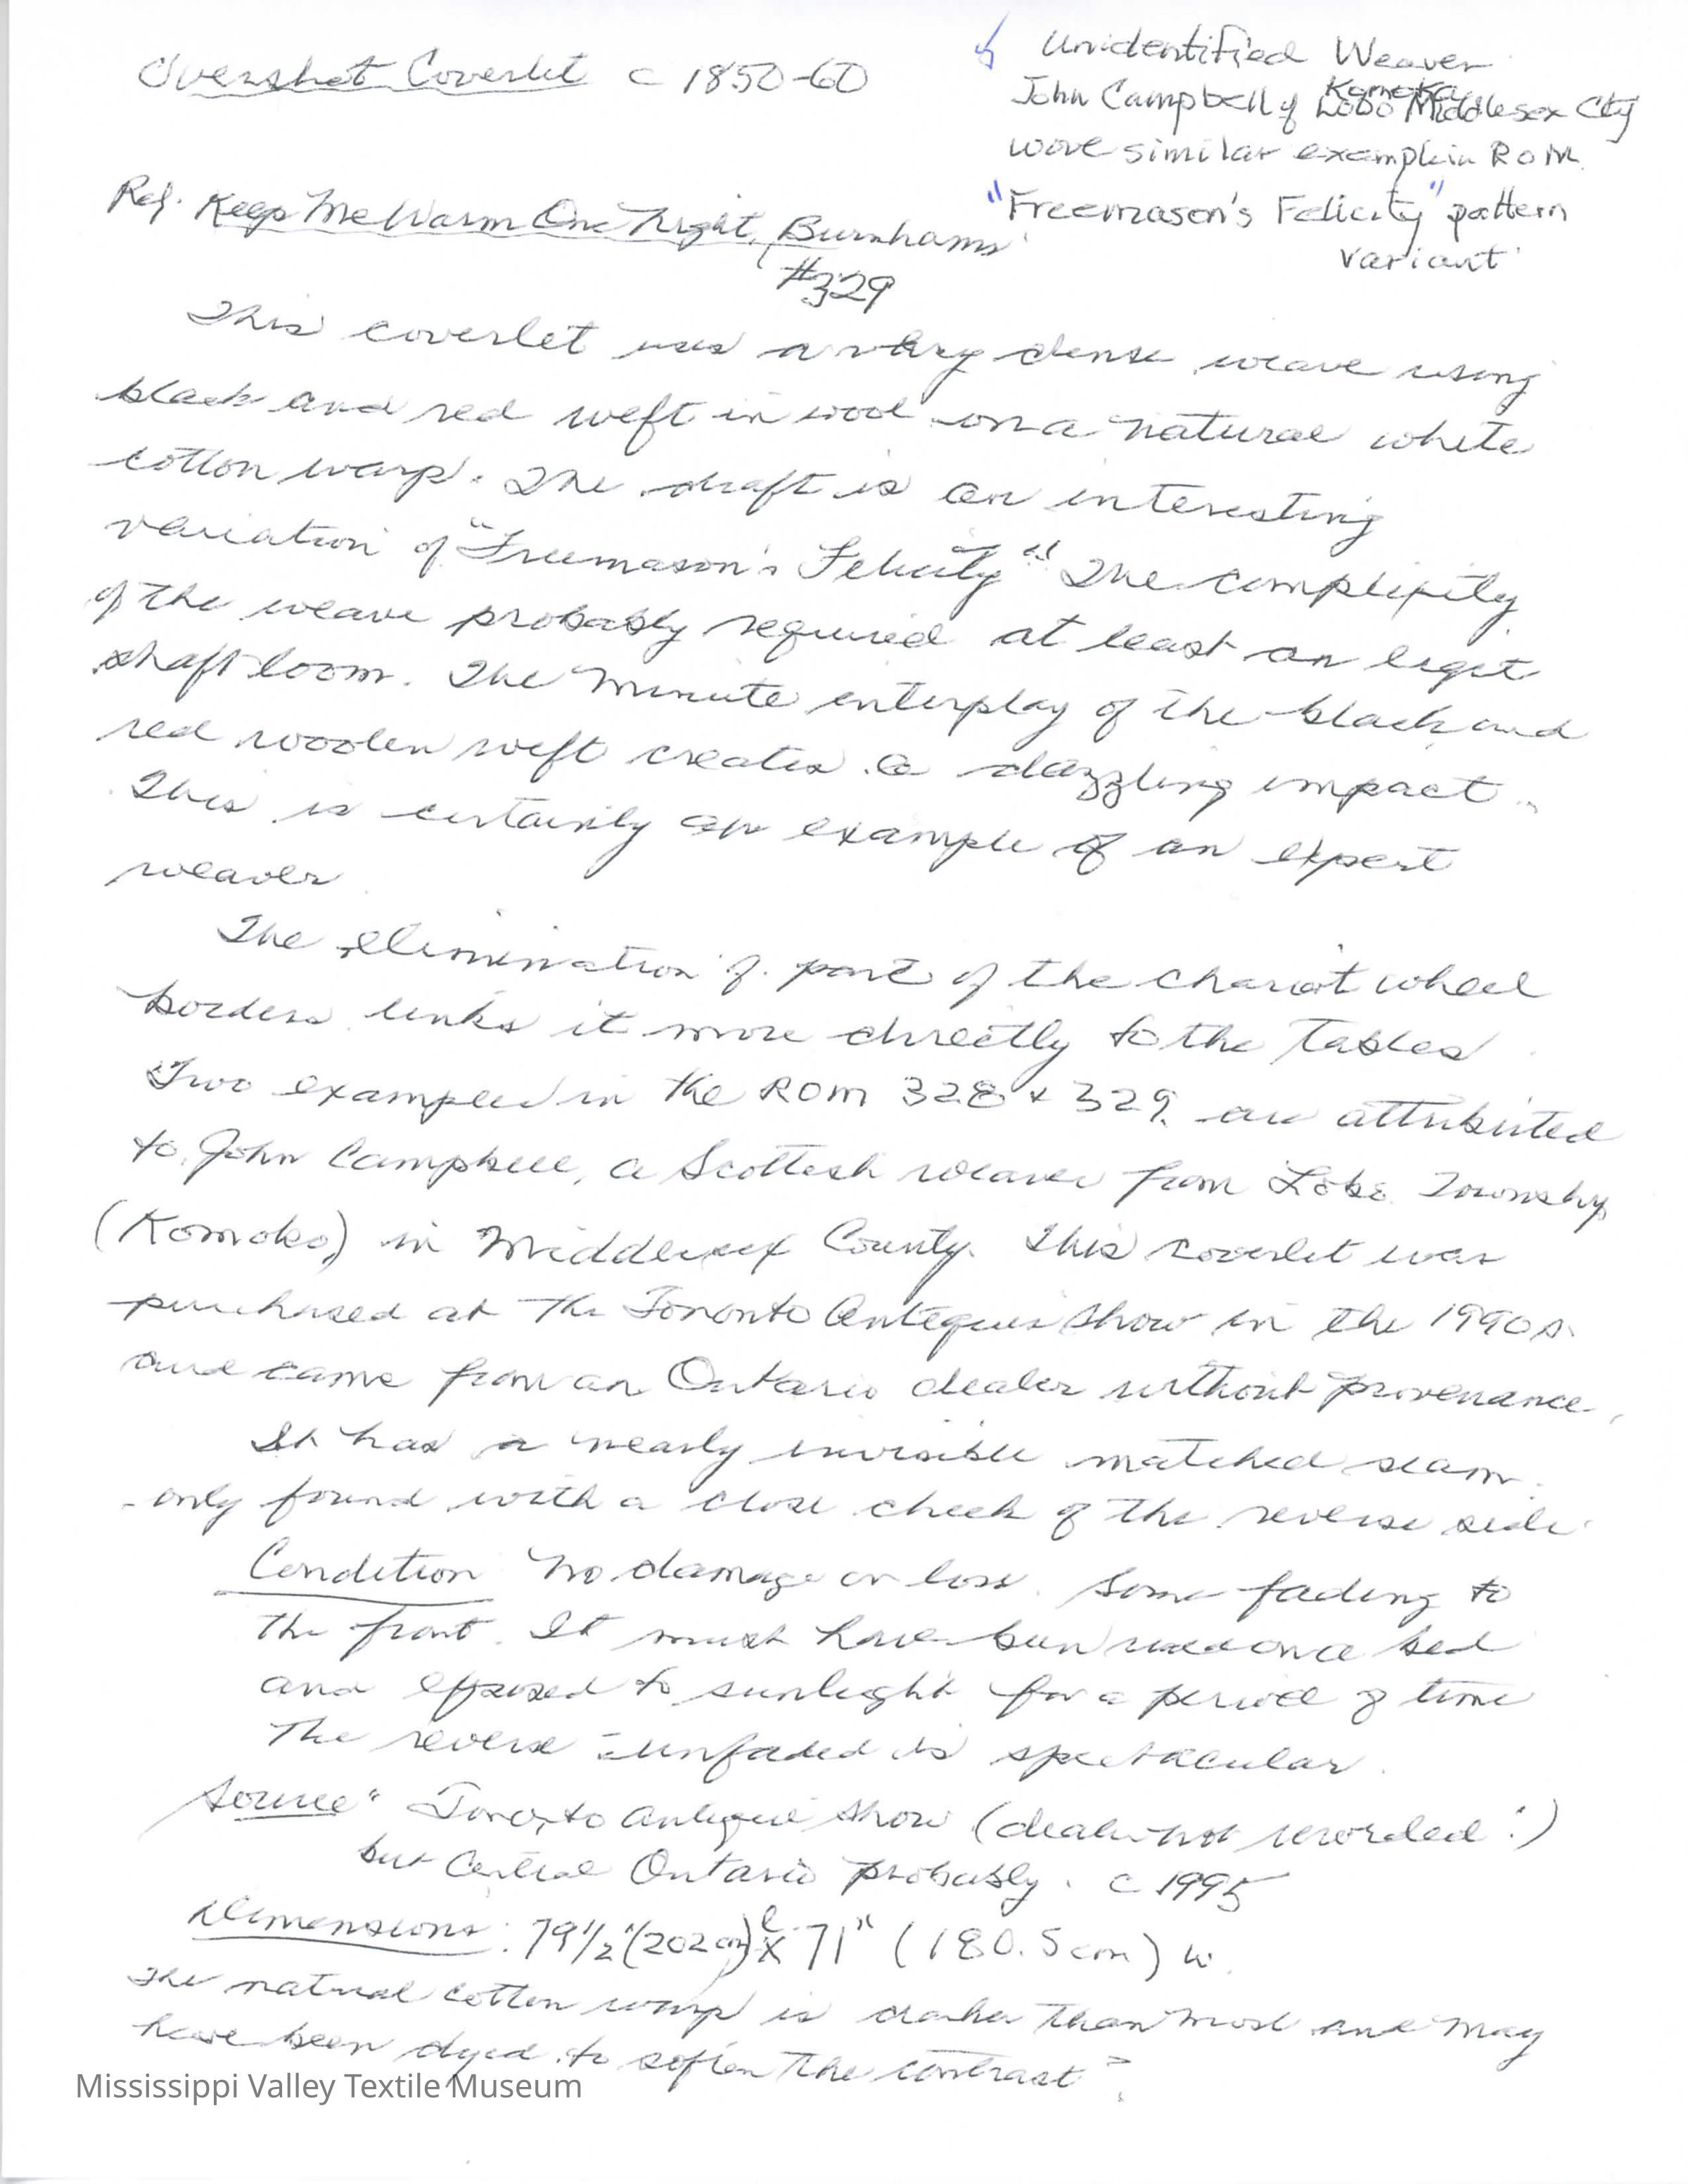 Overshot Coverlet c 1850-60
Unidentified Weaver
John Campbell of Lobo Komoka Middlesex Cty
wove similar example in ROM
"Freemason's Felicity" pattern
variant
Ref. Keep Me Warm One Night, Burnhams
#329
This coverlet uses a very dense weave using
black and red weft in wool on a natural white
cotton warp. The draft is an interesting
variation of "Freemason's Felicity" The complexity
of the weave probably required at least an eight
shaft loom. The minute interplay of the black and
red woolen weft creates a dazzling impact.
This is certainly an example of an expert
weaver
The elimination of part of the chariot wheel
borders links it more directly to the tables
Two examples in the ROM 328 & 329 are attributed
to John Campbell, a Scottish weaver from Lobo Township
(Komoko) in Middlesex County. This coverlet was
purchased at the Toronto Antiques Show in the 1990s
and came from an Ontario dealer without provenance.
It has a nearly invisible matched seam
- only found with a close check of the reverse side
Condition No damage or loss. Some fading to
the front. It must have been used once bed
and exposed to sunlight for a period of time
The reverse - unfaded is spectacular.
Source: Toronto Antique Show (dealer not recorded!)
but Central Ontario probably. c 1995
Dimensions: 79 1/2" (202 cm) l x 71" (180.5 cm) w.
The natural cotton warp is darker than most and may
have been dyed to soften the contrast?
Mississippi Valley Textile Museum